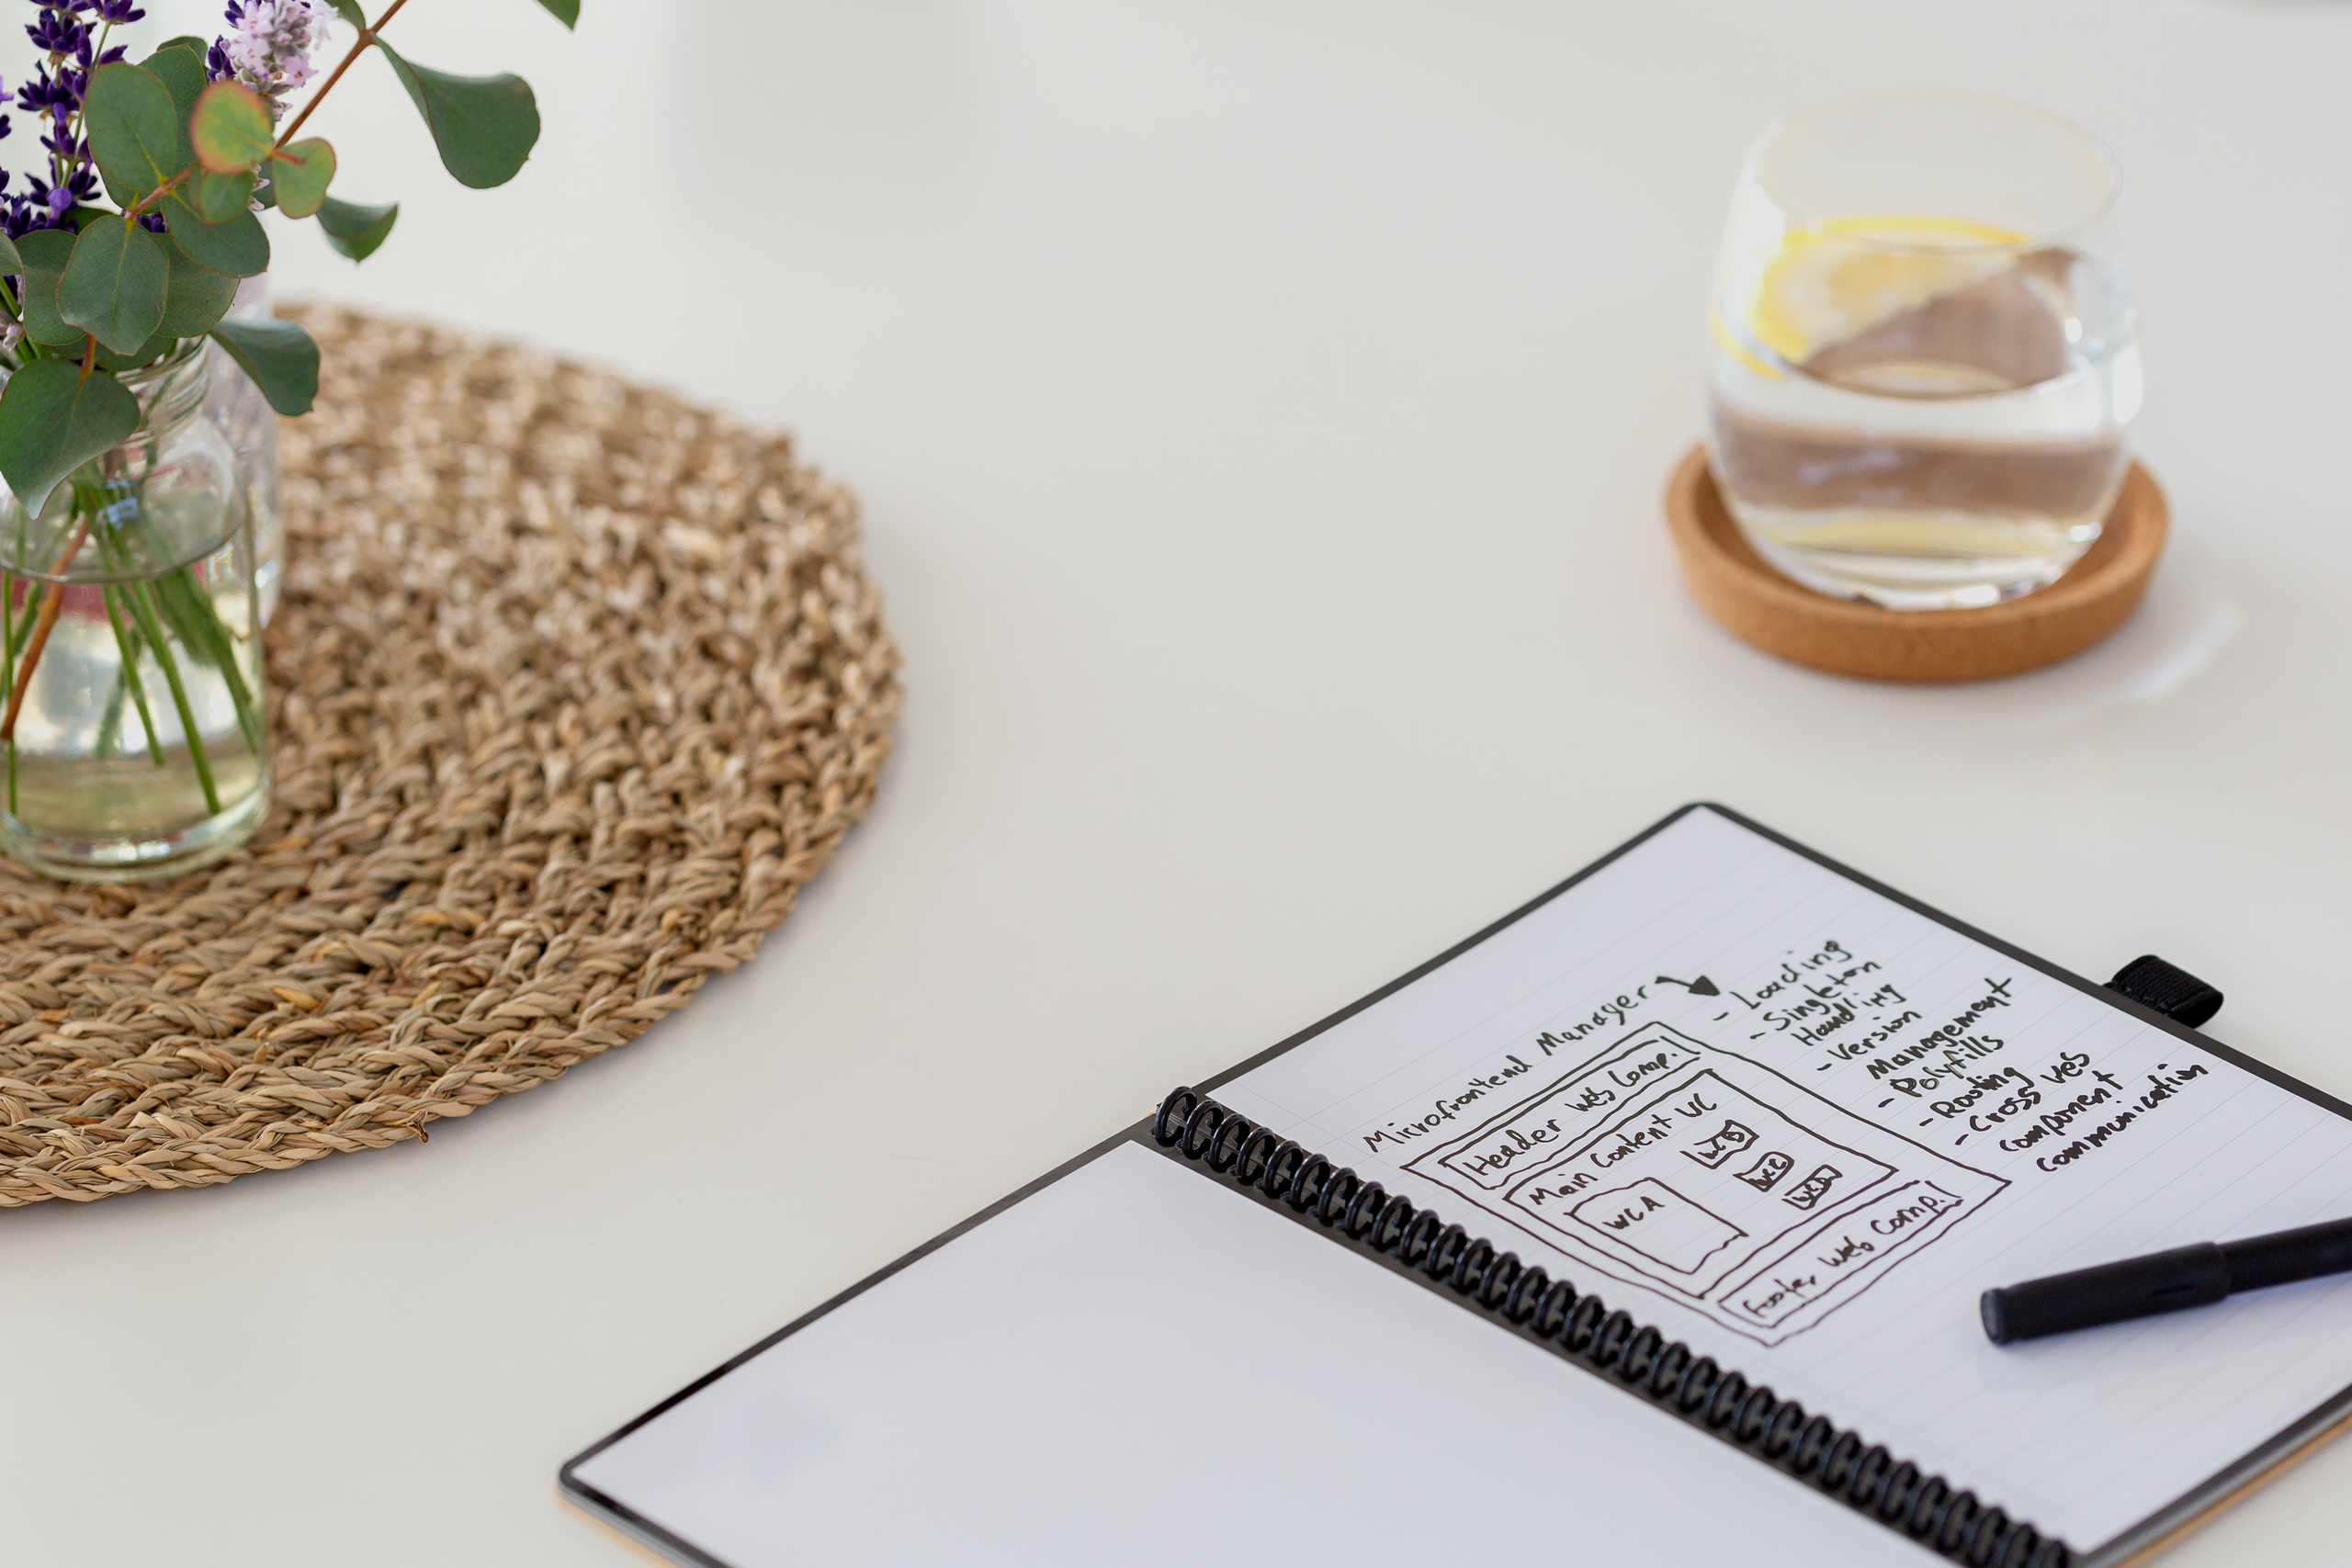 Microfrontend Manager
- Loading
- Singleton
Handling
- Version
Management
- Polyfills
- Routing
- Cross Web
Component
Communication
Header Web Comp.
Main Content WC
WC A
WC B
WC C
WC D
Footer Web Comp.